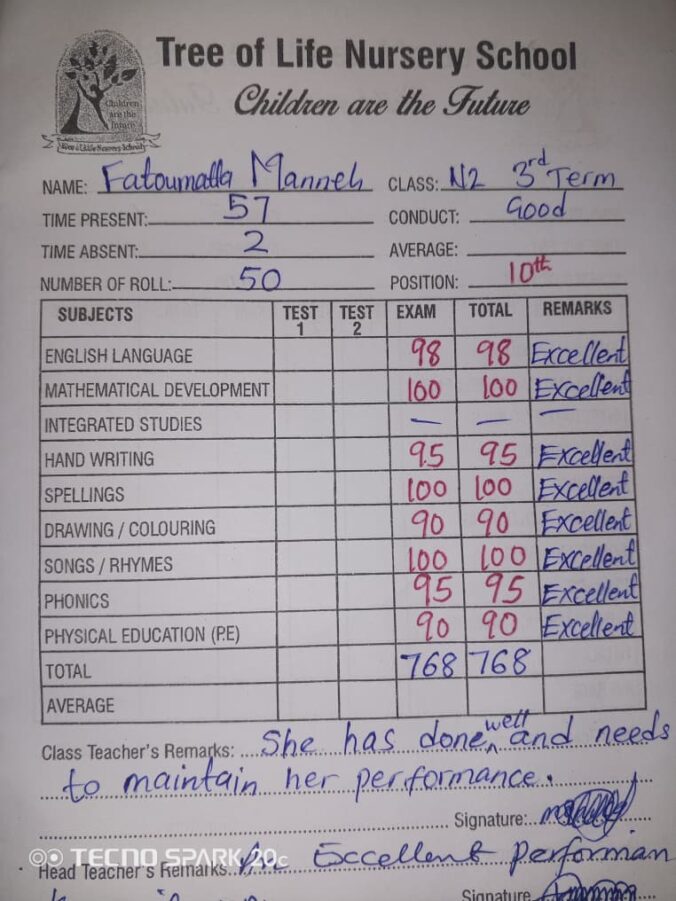 Children
are the
future
Tree of Life Nursery School
Tree of Life Nursery School
Children are the Future
NAME: Fatoumatta Manneh CLASS: N2 3rd Term
TIME PRESENT: 57 CONDUCT: Good
TIME ABSENT: 2 AVERAGE:
NUMBER OF ROLL: 50 POSITION: 10th
SUBJECTS TEST 1 TEST 2 EXAM TOTAL REMARKS
ENGLISH LANGUAGE 98 98 Excellent
MATHEMATICAL DEVELOPMENT 100 100 Excellent
INTEGRATED STUDIES — — —
HAND WRITING 95 95 Excellent
SPELLINGS 100 100 Excellent
DRAWING / COLOURING 90 90 Excellent
SONGS / RHYMES 100 100 Excellent
PHONICS 95 95 Excellent
PHYSICAL EDUCATION (PE) 90 90 Excellent
TOTAL 768 768
AVERAGE
Class Teacher's Remarks: She has done well and needs
to maintain her performance.
Signature:
Head Teacher's Remarks: An Excellent performan
TECNO SPARK 20C
Signature